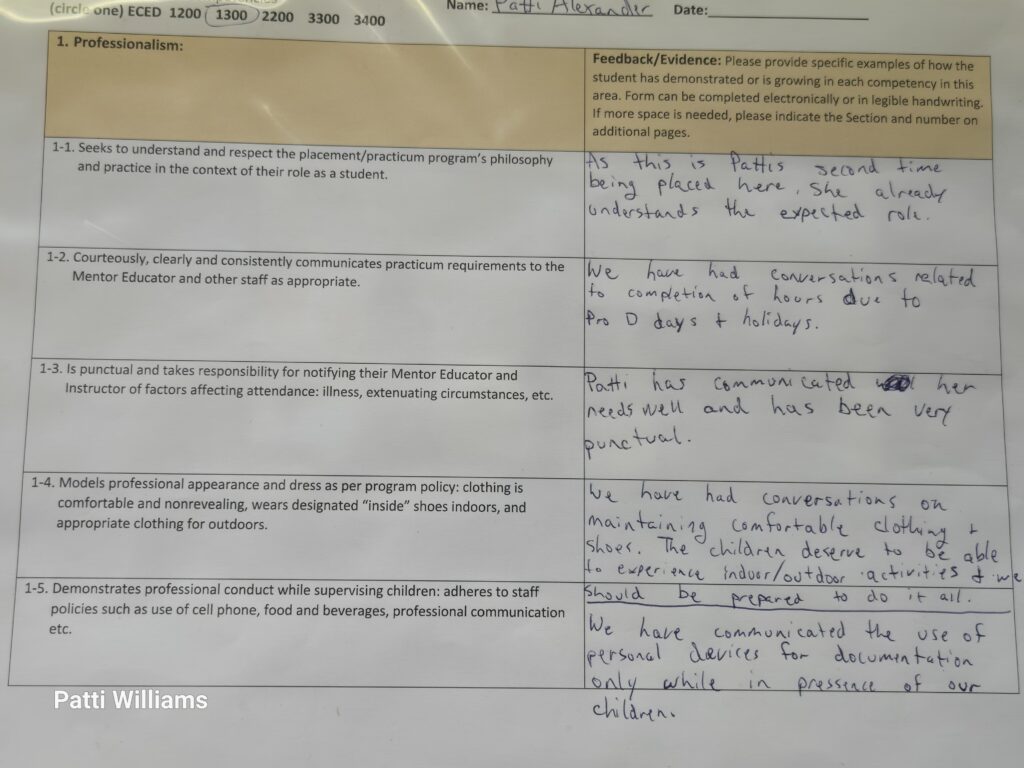 (circle one) ECED 1200 1300 2200 3300 3400
Name: Patti Alexander Date:
1. Professionalism:
Feedback/Evidence: Please provide specific examples of how the
student has demonstrated or is growing in each competency in this
area. Form can be completed electronically or in legible handwriting.
If more space is needed, please indicate the Section and number on
additional pages.
1-1. Seeks to understand and respect the placement/practicum program's philosophy
and practice in the context of their role as a student.
As this is Pattis second time
being placed here, she already
understands the expected role.
1-2. Courteously, clearly and consistently communicates practicum requirements to the
Mentor Educator and other staff as appropriate.
We have had conversations related
to completion of hours due to
Pro D days + holidays.
1-3. Is punctual and takes responsibility for notifying their Mentor Educator and
Instructor of factors affecting attendance: illness, extenuating circumstances, etc.
Patti has communicated her
needs well and has been very
punctual.
1-4. Models professional appearance and dress as per program policy: clothing is
comfortable and nonrevealing, wears designated "inside" shoes indoors, and
appropriate clothing for outdoors.
We have had conversations on
maintaining comfortable clothing +
shoes. The children deserve to be able
to experience indoor/outdoor activities & we
should be prepared to do it all.
1-5. Demonstrates professional conduct while supervising children: adheres to staff
policies such as use of cell phone, food and beverages, professional communication
etc.
We have communicated the use of
personal devices for documentation
only while in pressence of our
children.
Patti Williams